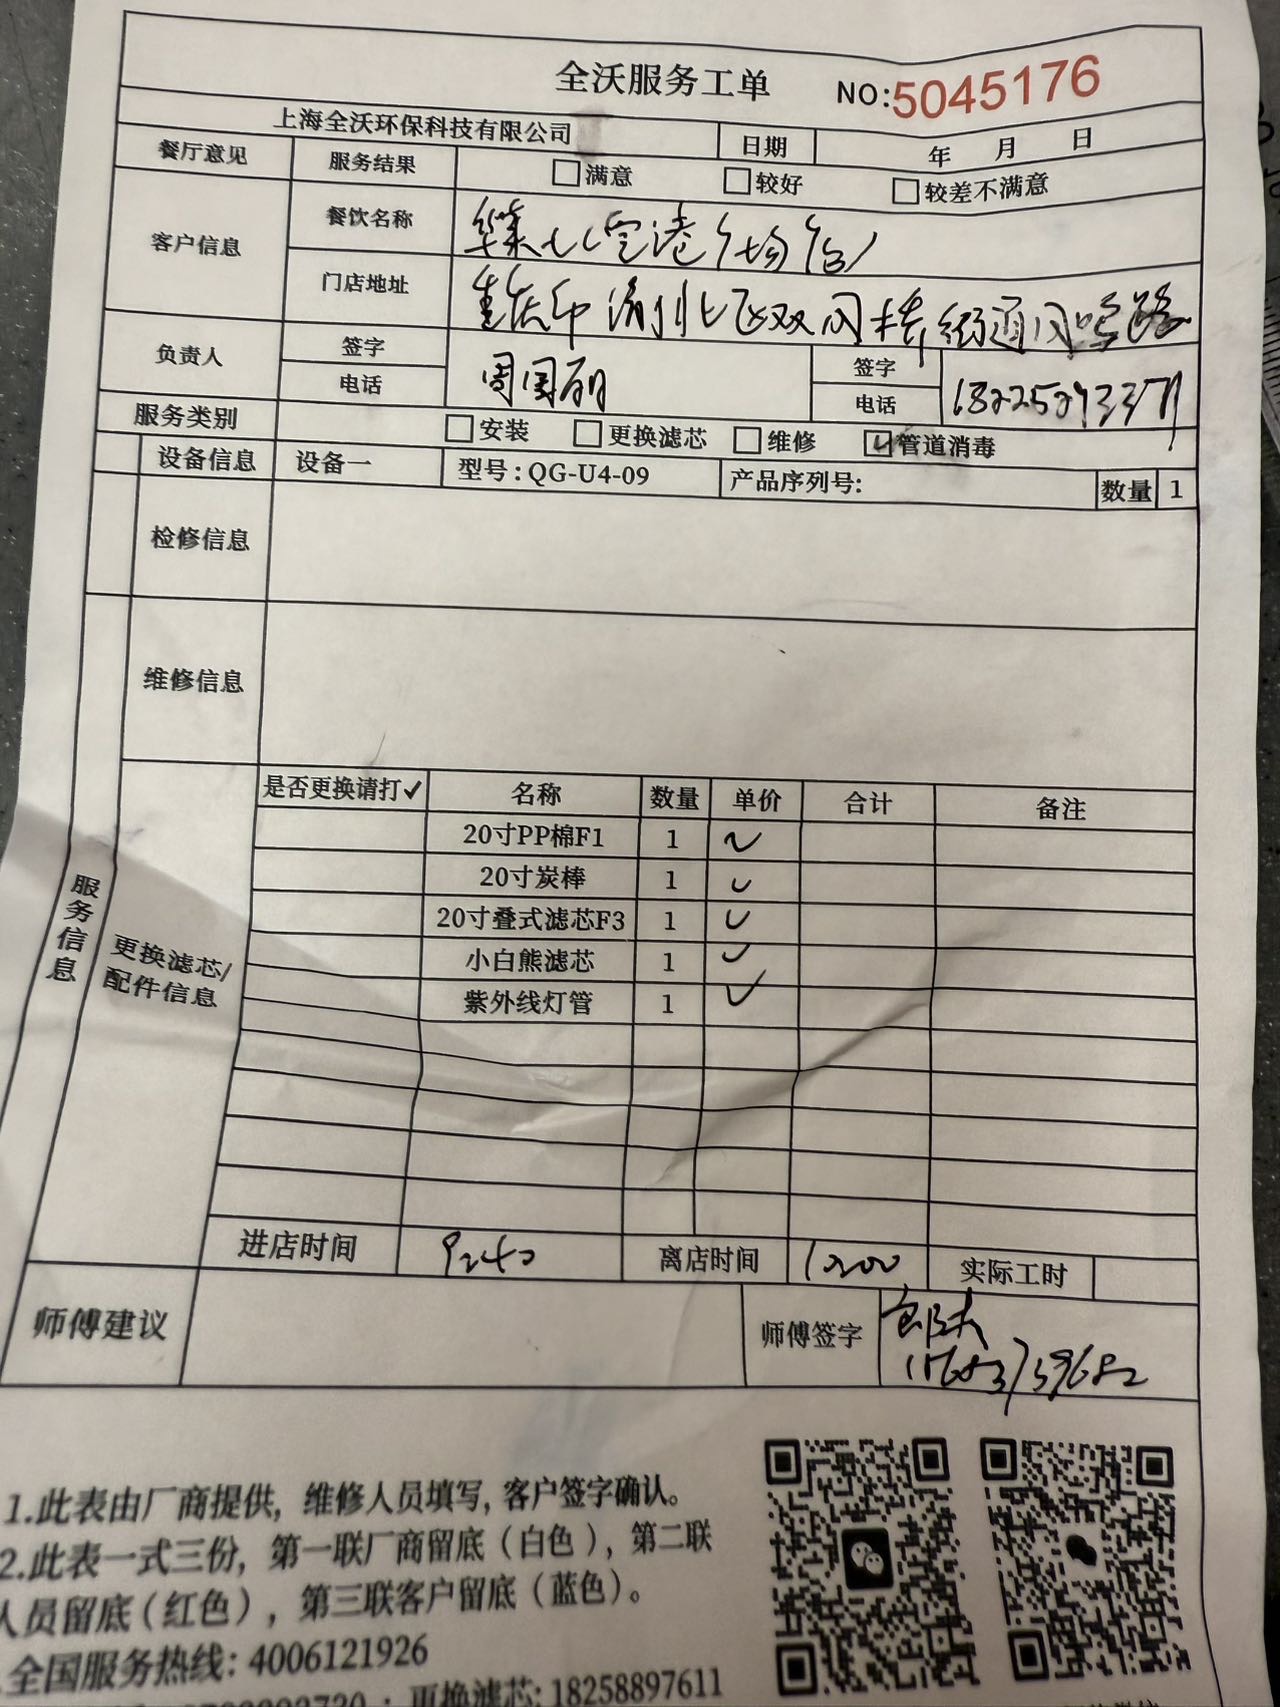 全沃服务工单 NO:5045176
上海全沃环保科技有限公司 日期 年 月 日
餐厅意见 服务结果 □满意 □较好 □较差不满意
客户信息 餐饮名称 空港广场店
门店地址 重庆市渝北区双凤桥街道
负责人 签字 周国丽 签字
电话 电话
服务类别 □安装 □更换滤芯 □维修 ☑管道消毒
设备信息 设备一 型号：QG-U4-09 产品序列号: 数量 1
检修信息
维修信息
服务信息
更换滤芯/
配件信息
是否更换请打✓ 名称 数量 单价 合计 备注
20寸PP棉F1 1 ✓
20寸炭棒 1 ✓
20寸叠式滤芯F3 1 ✓
小白熊滤芯 1 ✓
紫外线灯管 1 ✓
进店时间 9:40 离店时间 10:00 实际工时
师傅建议 师傅签字
1.此表由厂商提供, 维修人员填写, 客户签字确认。
2.此表一式三份, 第一联厂商留底（白色）, 第二联
人员留底（红色）, 第三联客户留底（蓝色）。
全国服务热线: 4006121926
更换滤芯: 18258897611